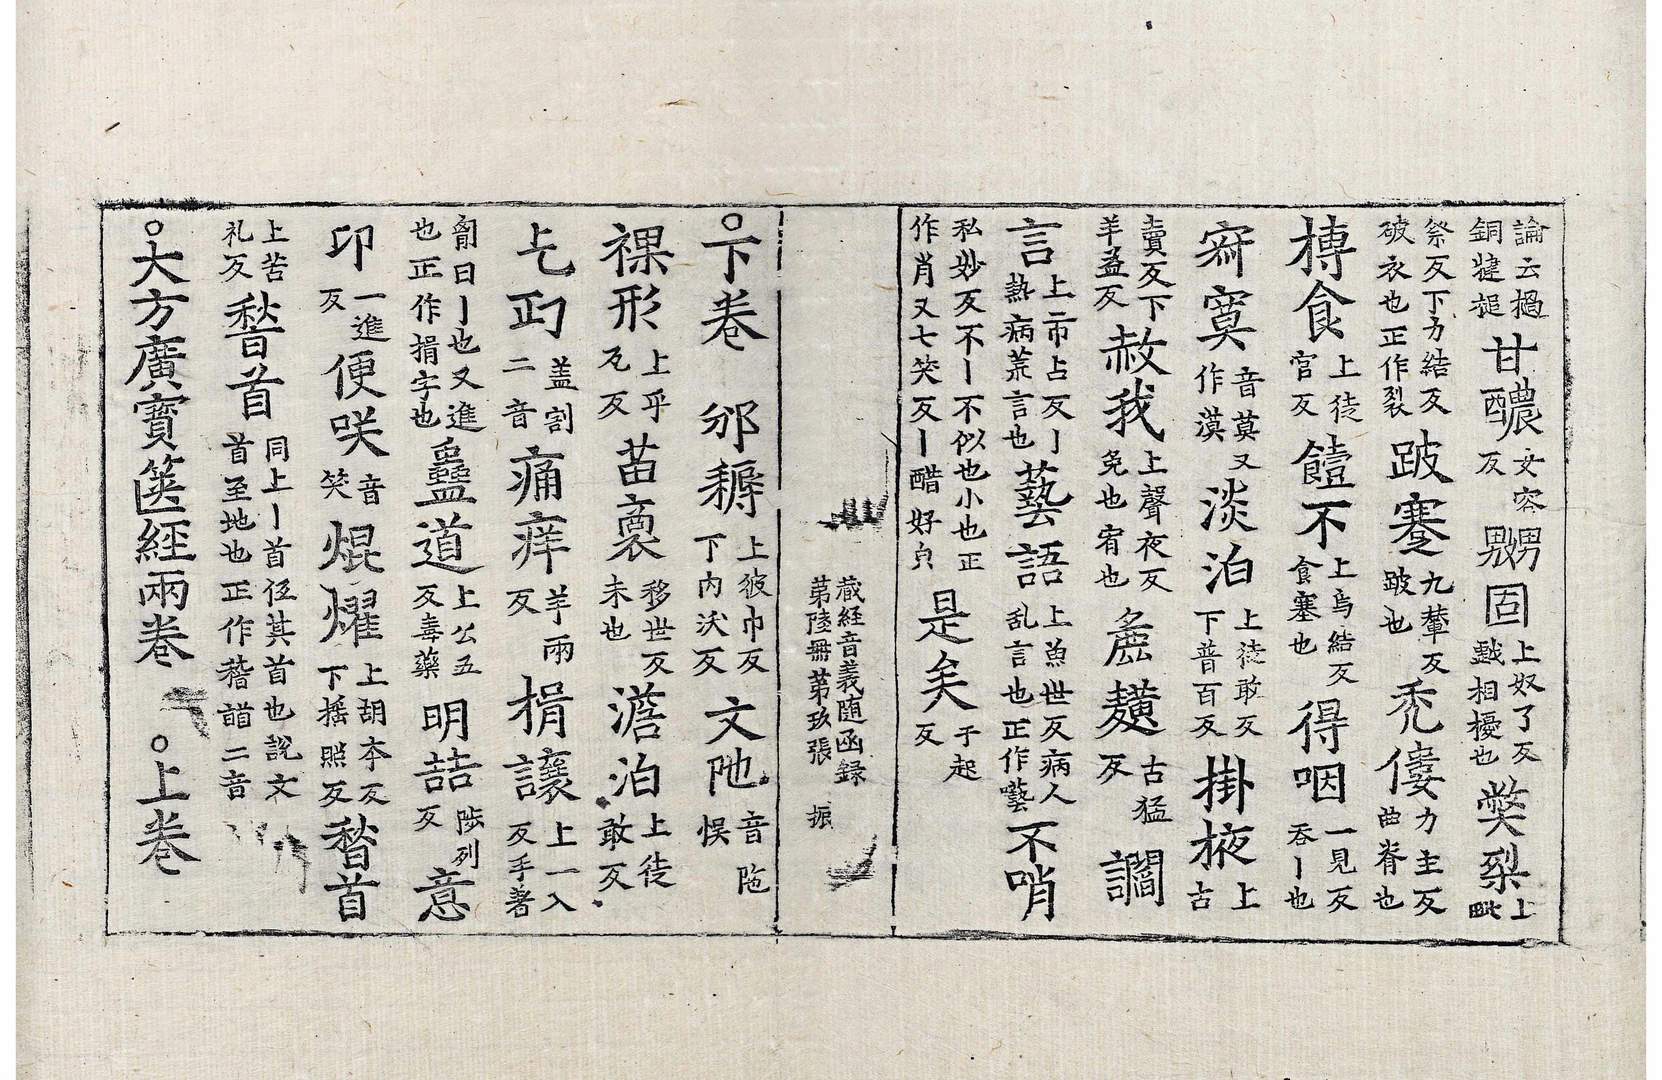 論云撾銅犍槌甘醲女容反嬲固上奴了反戲相擾也獘裂上毗
祭反下力結反破衣也正作裂跛蹇九輦反跛也禿僂力主反曲脊也
摶食上徒官反饐不上烏結反食塞也得咽一見反吞丨也
寞音莫又作漠淡泊上徒敢反下普百反掛掖上古
賣反下羊益反赦我上聲夜反免也宥也麁穬古猛反讇
言上市占反丨熱病荒言也藝語上魚世反病人乱言也正作囈不哨
私妙反不丨不似也小也正作肖又七笑反丨醋好皃是矣于起反
藏經音義随函録
第陸冊第玖張 振
○下卷 邠耨上彼巾反下内沃反文阤音陁悮
裸形上乎瓦反苗裔移世反末也澹泊上徒敢反
乞匃盖割二音痛痒羊兩反揖讓上一入反手著
匈曰丨也又進也正作揖字也蠱道上公五反毒藥明喆陟列反意
印一進反便咲音笑焜燿上胡本反下揺照反䭫首
上苦礼反䭫首同上丨首伍其首也說文首至地也正作稽䭫二音
○大方廣寶篋經兩卷 ○上卷